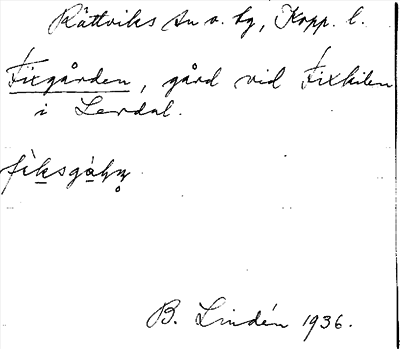 Rättviks sn o. tg, Kopp. l.
Fixgården, gård vid Fixkilen
i Lerdal.
fìksgàhṇ
B. Lindén 1936.